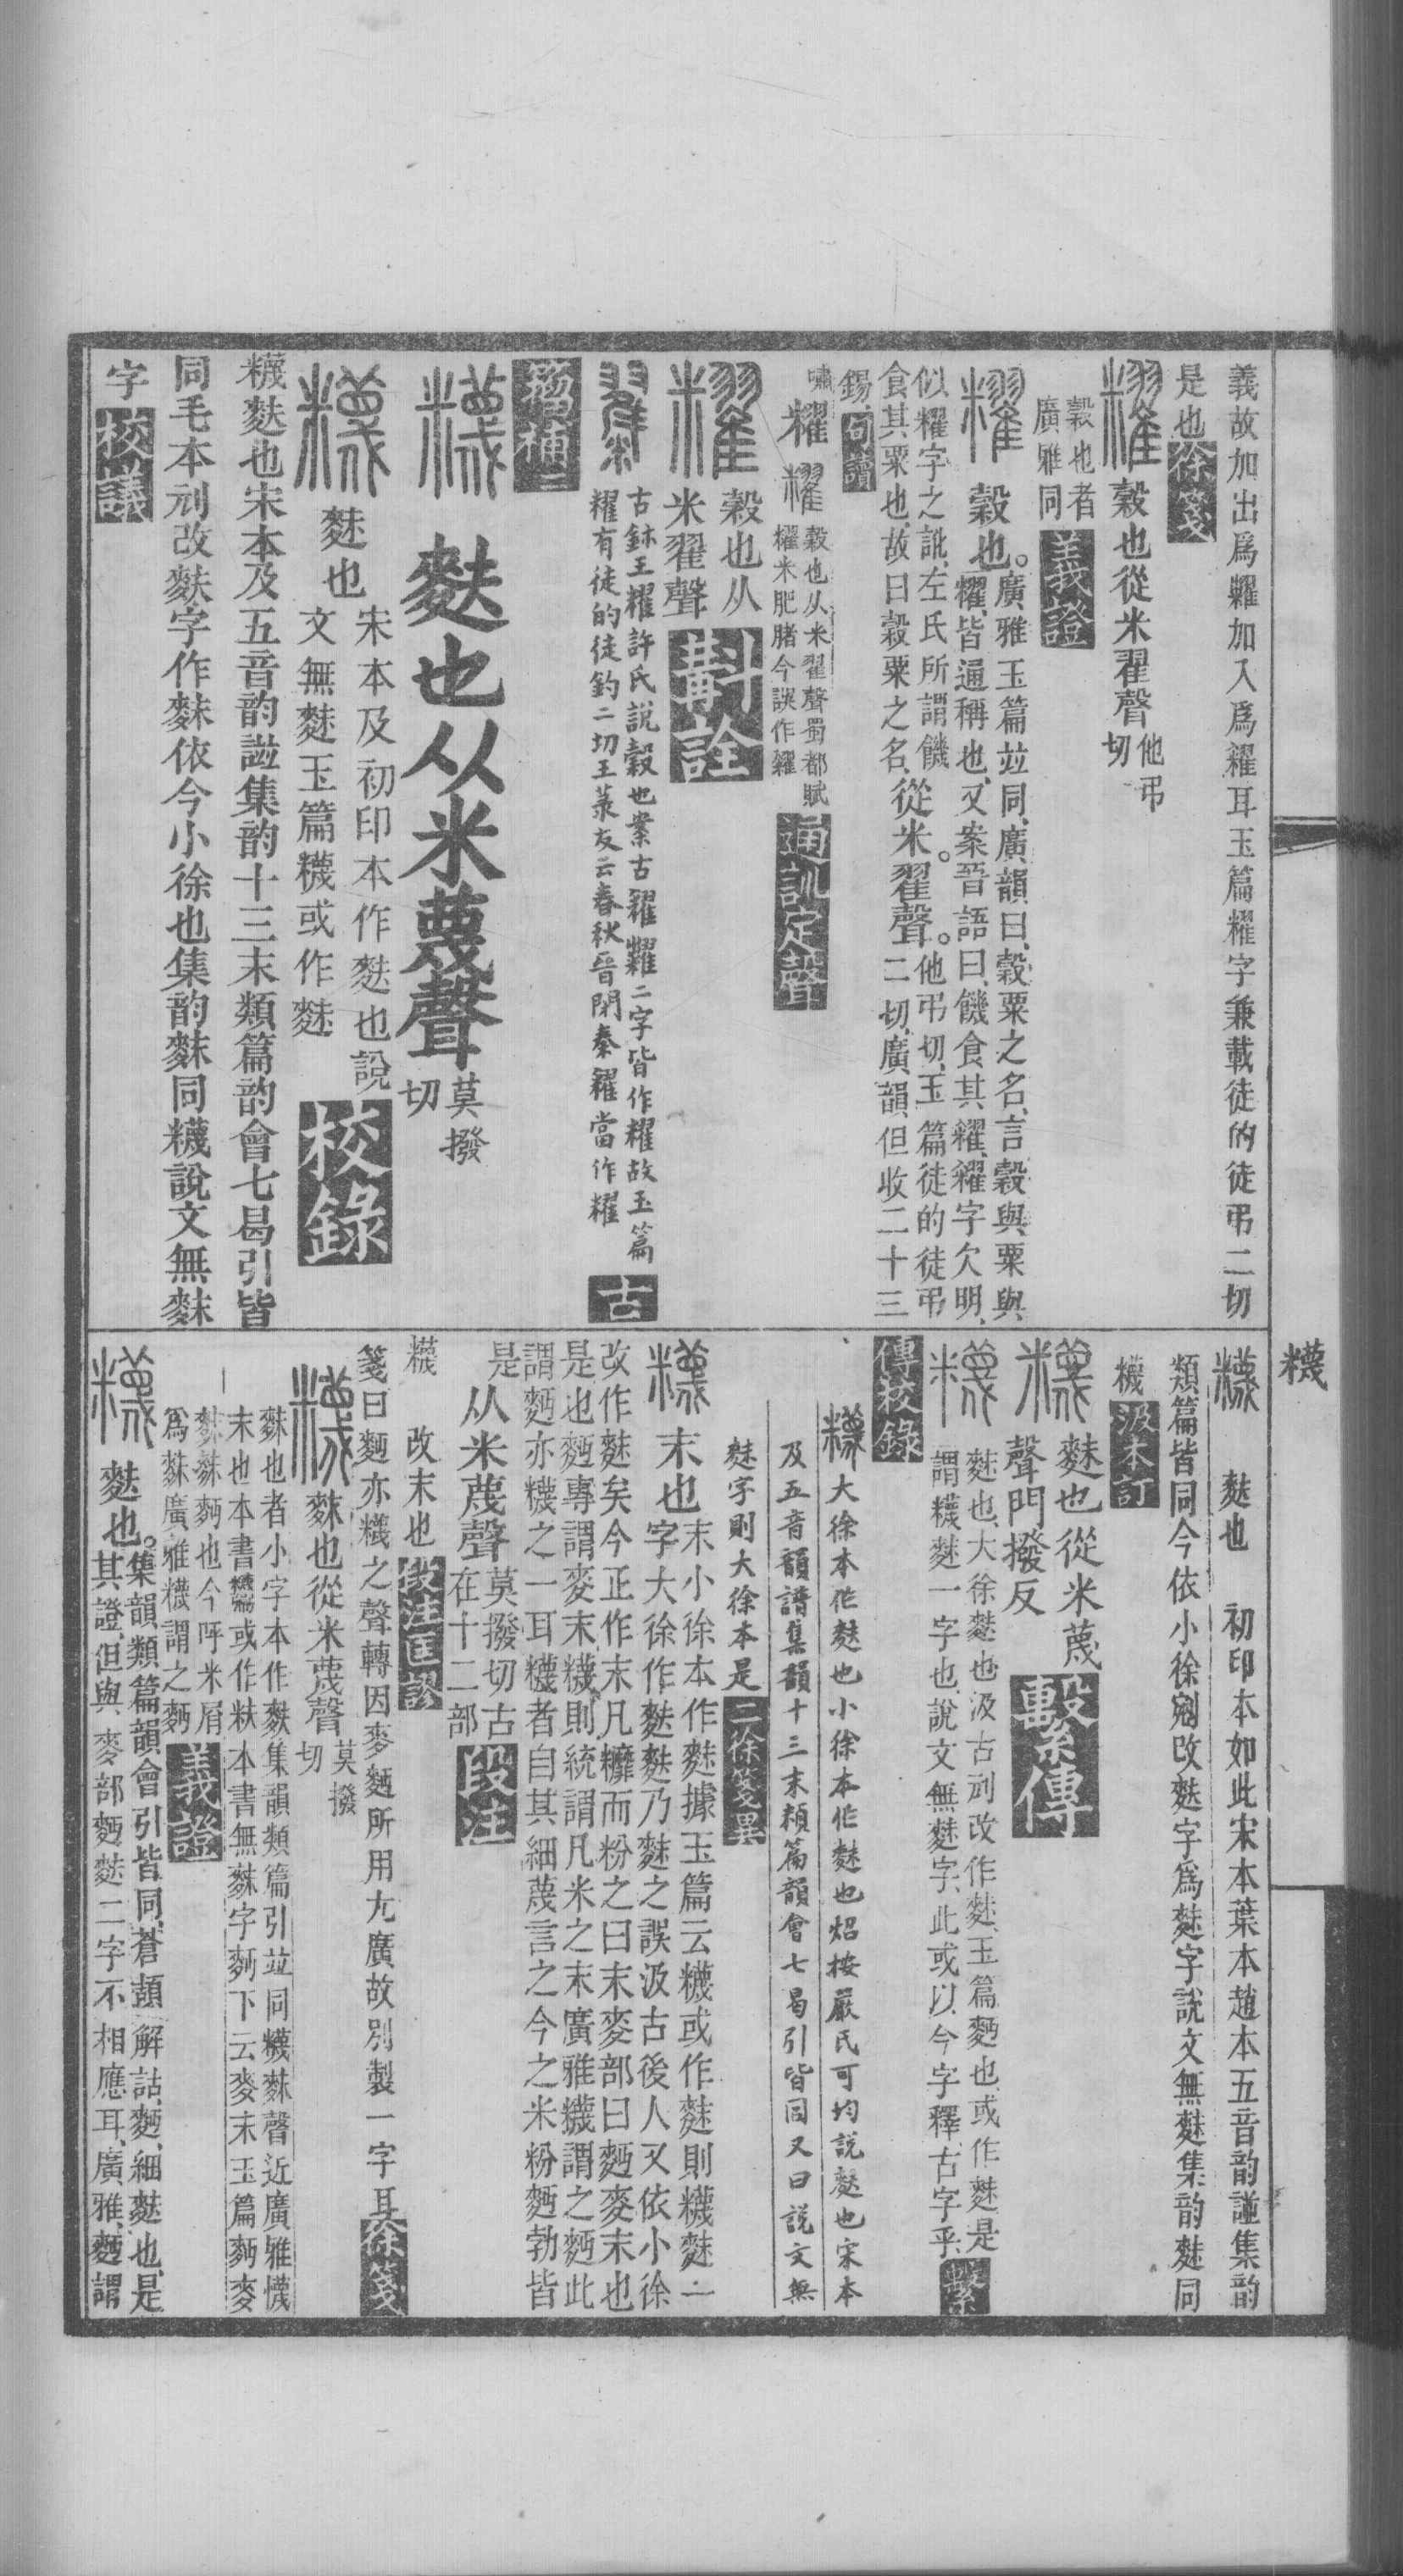 義故加出爲糶加入爲糴耳玉篇糶字兼載徒的徒弔二切
是也徐箋
糶穀也從米翟聲他弔切
穀也者廣雅同義證
糶穀也廣雅玉篇竝同廣韻曰穀粟之名言穀與粟與
糶皆通稱也又案晉語曰饑食其糶糴字欠明
似糶字之訛左氏所謂饑
食其粟也故曰穀粟之名從米翟聲他弔切玉篇徒的徒弔
二切廣韻但收二十三
錫句讀
嘯糶穀也从米翟聲蜀都賦
糶米肥腯今誤作糴通訓定聲
穀也从
米翟聲斠詮
古鉢王糶許氏說穀也案古糴糶二字皆作糶故玉篇
糶有徒的徒釣二切王菉友云春秋晉閉秦糴當作糶古
籀補二
䊳麩也从米蔑聲莫撥切
䊳麩也宋本及初印本作麩也說
文無麩玉篇䊳或作麩校錄
䊳麩也宋本及五音韵譜集韵十三末類篇韵會七曷引皆
同毛本刓改麩字作䴲依今小徐也集韵䴲同䊳說文無䴲
字校議
䊳
䊳麩也初印本如此宋本葉本趙本五音韵譜集韵
類篇皆同今依小徐剜改麩字爲䴲字說文無䴲集韵䴲同
䊳汲本訂
䊳麩也從米蔑
聲門撥反繫傳
䊳䴲也大徐麩也汲古刓改作䴲玉篇麪也或作䴲是
謂䊳䴲一字也說文無䴲字此或以今字釋古字乎繫
傳校錄
䊳大徐本作麩也小徐本作䴲也炤按嚴氏可均說麩也宋本
及五音韻譜集韻十三末類篇韻會七曷引皆同又曰說文無
䴲字則大徐本是二徐箋異
䊳末也末小徐本作䴲據玉篇云䊳或作䴲則䊳䴲一
字大徐作麩麩乃䴲之誤汲古後人又依小徐
改作䴲矣今正作末凡䊳而粉之曰末麥部曰麪麥末也
是也麪專謂麥末䊳則統謂凡米之末廣雅䊳謂之麪此
謂麪亦䊳之一耳䊳者自其細蔑言之今之米粉麪勃皆
是从米蔑聲莫撥切古
在十二部段注
䊳改末也段注匡謬
箋曰麪亦䊳之聲轉因麥麪所用尤廣故別製一字耳徐箋
䊳䴲也從米蔑聲莫撥切
䴲也者小字本作麩集韻類篇引竝同䊳䴲聲近廣雅䊳
末也本書或作䊳本書無䴲字麪下云麥末玉篇麪麥
䴲䴲麪也今呼米屑
爲䴲廣雅䊳謂之麪義證
䊳麩也集韻類篇韻會引皆同蒼頡解詁麪細麩也是
其證但與麥部麪麩二字不相應耳廣雅麪謂